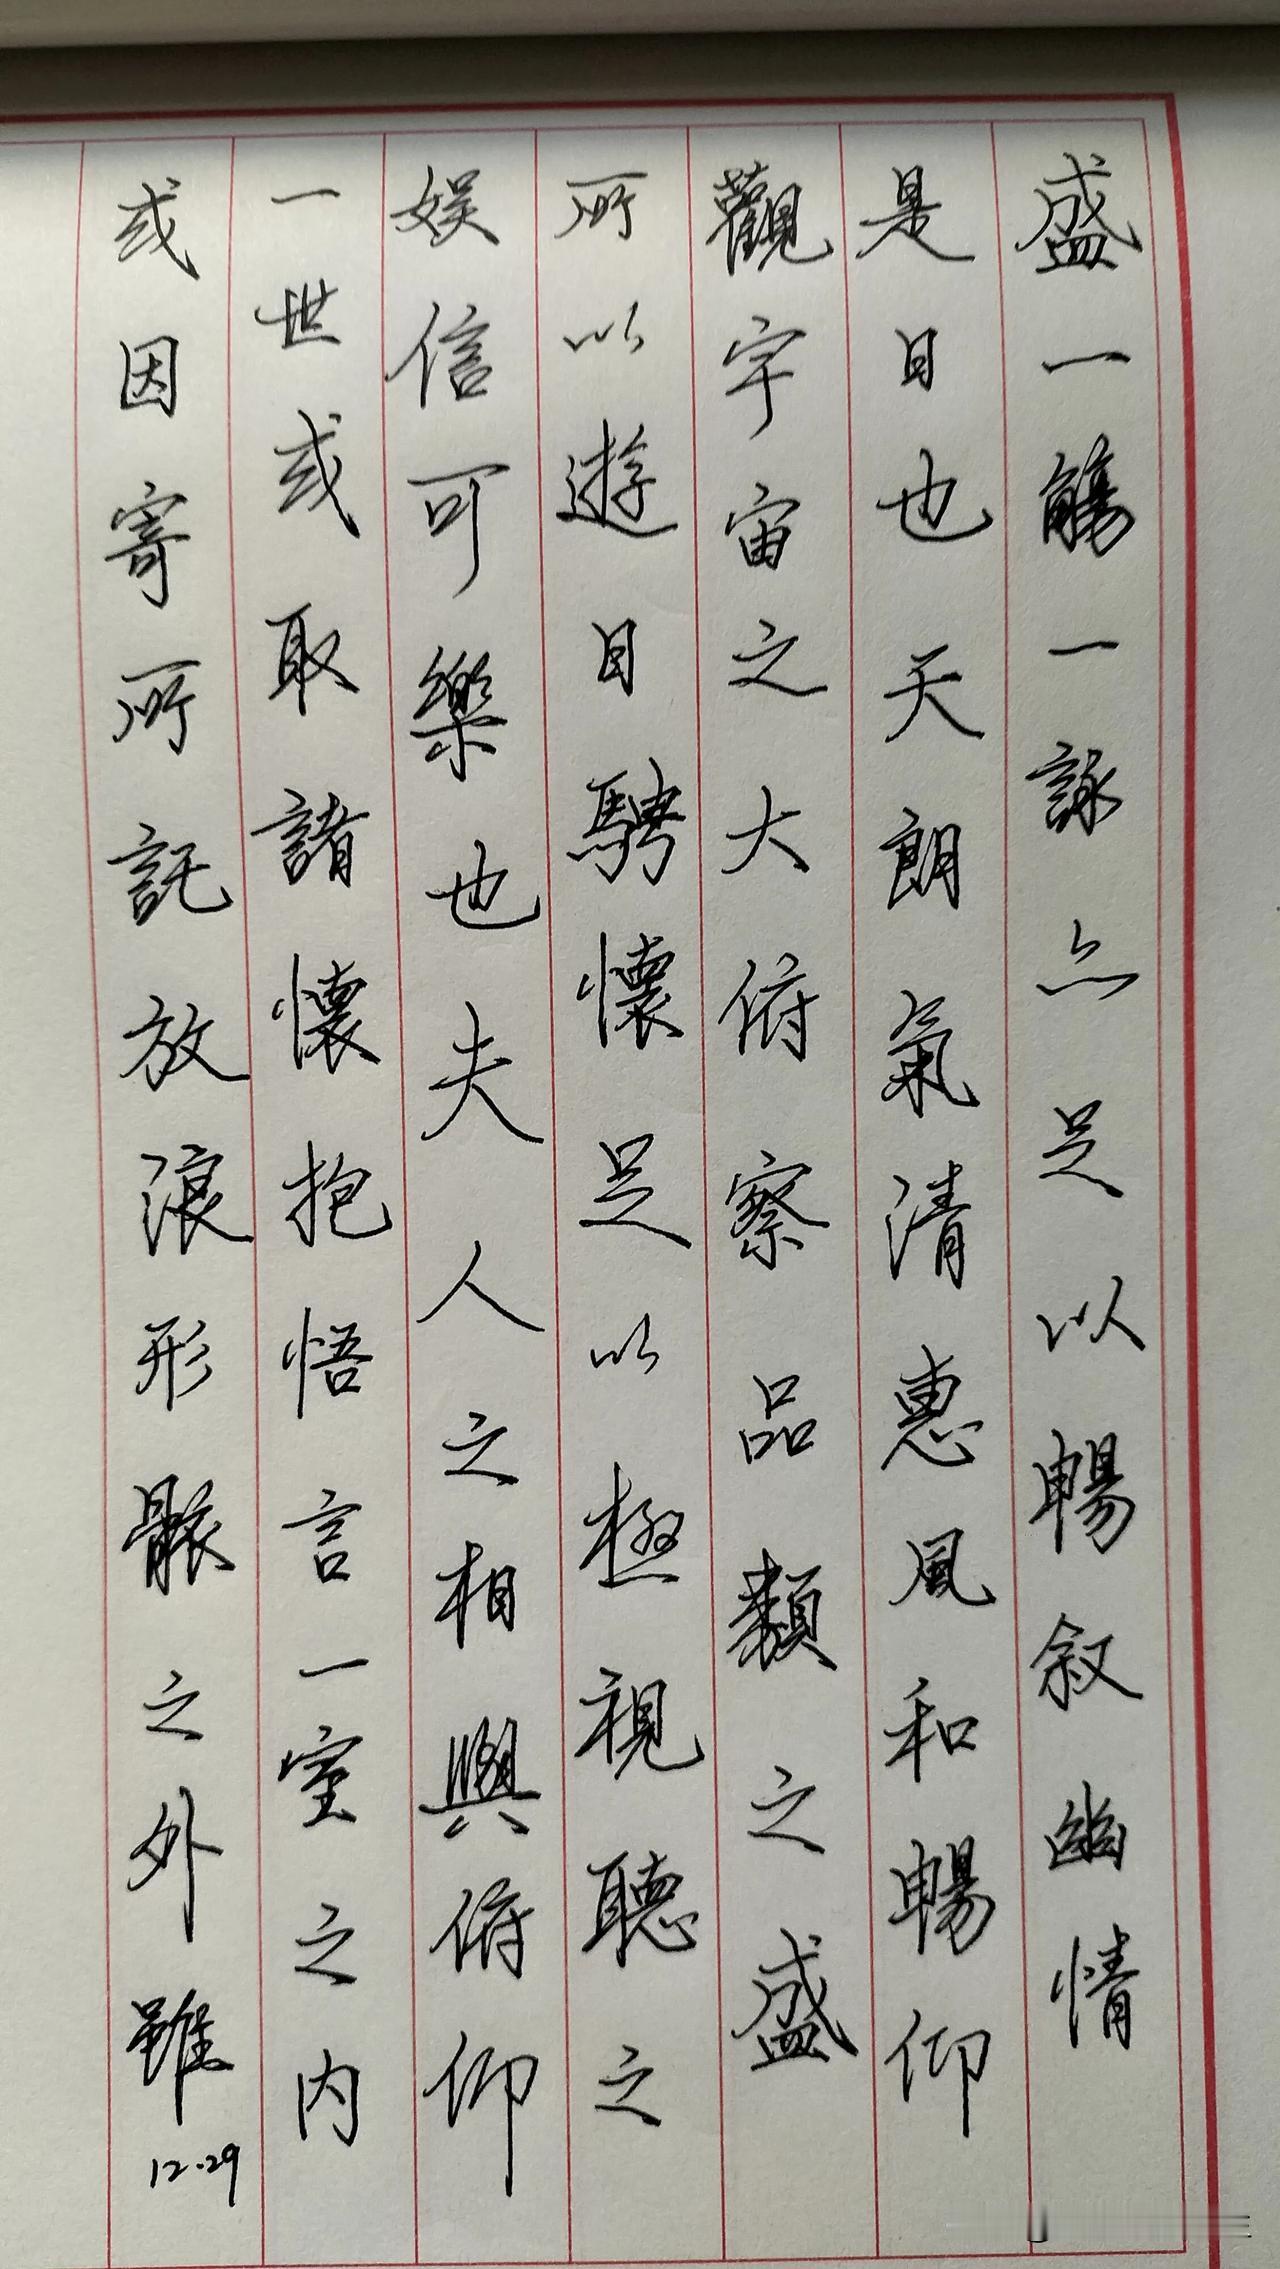 盛一觴一詠亦足以暢叙幽情
是日也天朗氣清惠風和暢仰
觀宇宙之大俯察品類之盛
所以遊目騁懷足以極視聽之
娱信可樂也夫人之相與俯仰
一世或取諸懷抱悟言一室之内
或因寄所託放浪形骸之外雖
12.29